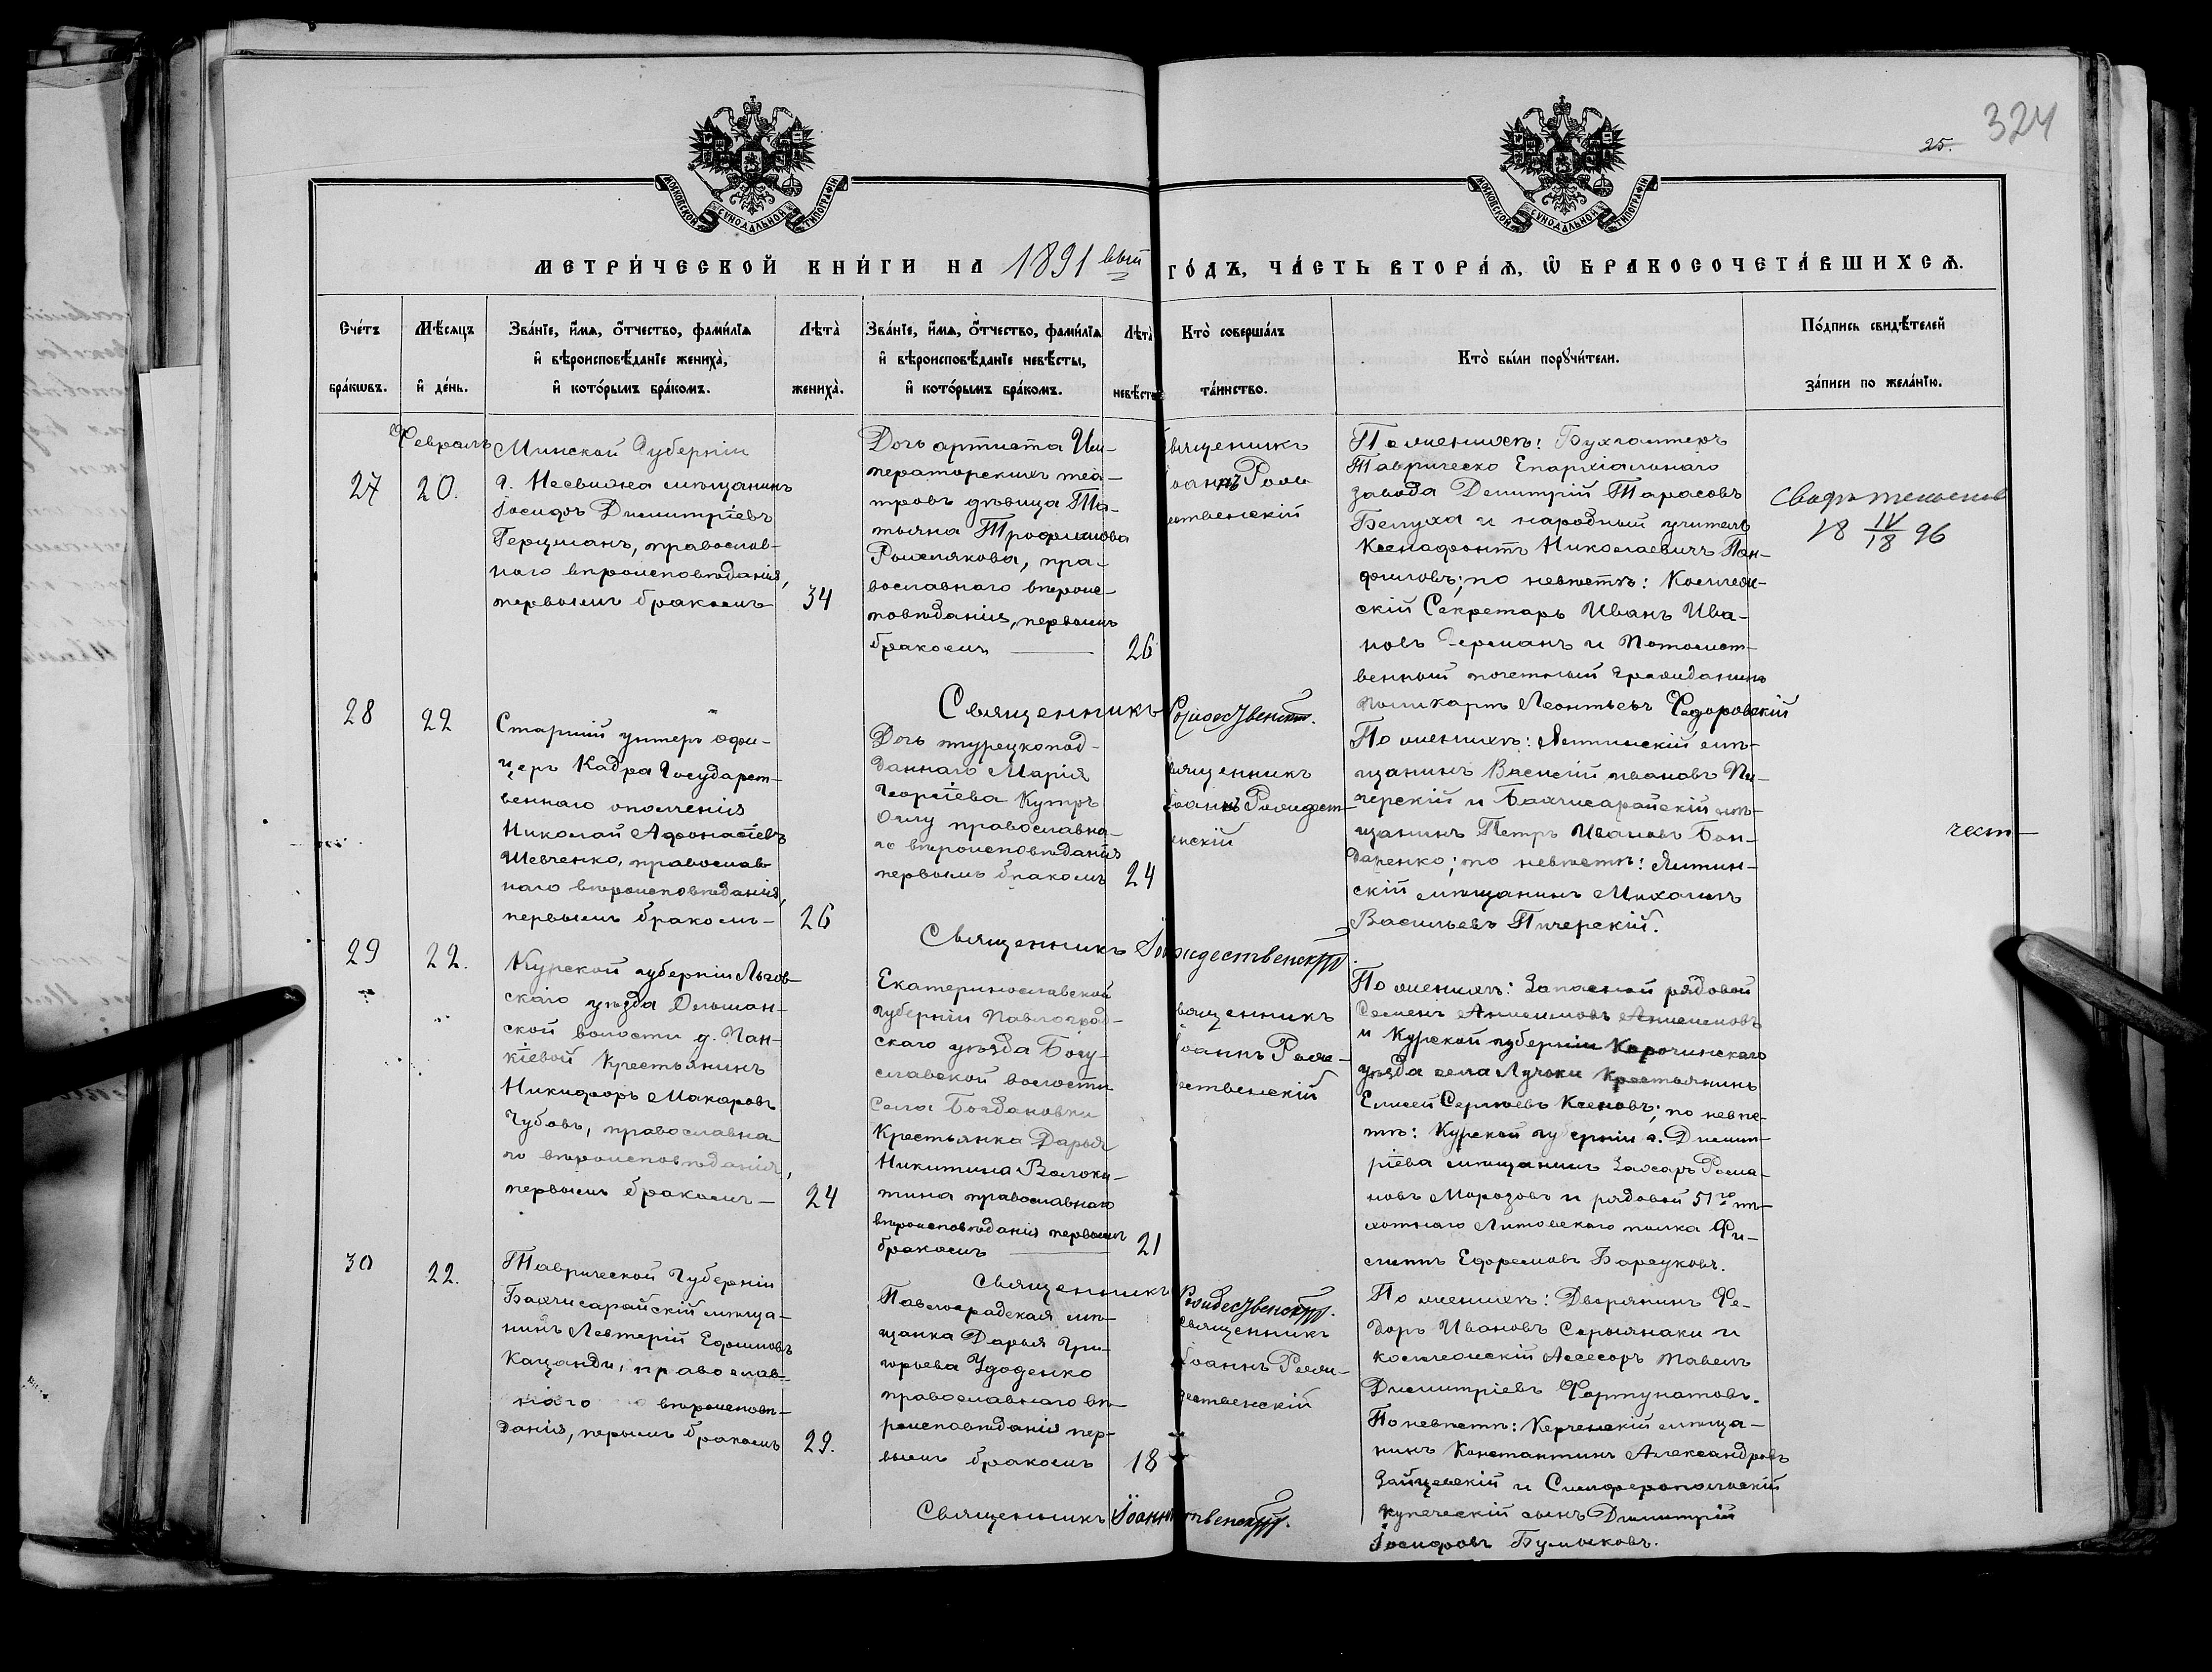 324
25.
МОСКОВСКОЙ СѴНОДАЛЬНОЙ ТИПОГРАФІИ
МОСКОВСКОЙ СѴНОДАЛЬНОЙ ТИПОГРАФІИ
МЕТРИ́ЧЕСКОЙ КНИ́ГИ НА 1891 вый ГО́ДЪ, ЧА́СТЬ ВТОРА́Я, Ѡ БРАКОСОЧЕТА́ВШИХСЯ.
Сче́тъ
бра́кѡвъ.
Мѣ́сяцъ
и҆ де́нь.
Зва́нїе, и҆́мя, ѻ҆́тчество, фами́лїя
и҆ вѣроисповѣ́данїе жениха̀,
и҆ кото́рымъ бра́комъ.
Лѣта̀
жениха̀.
Зва́нїе, и҆́мя, ѻ҆́тчество, фами́лїя
и҆ вѣроисповѣ́данїе невѣ́сты,
и҆ кото́рымъ бра́комъ.
Лѣта̀
невѣ́сты
Кто̀ соверша́лъ
та́инство.
Кто̀ бы́ли порꙋчи́тели.
По́дпись свидѣ́телей
за́писи по жела́нїю.
27
Февраль
20.
Минской Губерніи
г. Несвижа мѣщанинъ
Іосифъ Димитріевъ
Герцманъ, православ-
наго вѣроисповѣданія,
первымъ бракомъ
34
Дочь артиста Им-
ператорскихъ теа-
тровъ дѣвица Та-
тьяна Трофимова
Рошлякова, пра-
вославнаго вѣроис-
повѣданія, первымъ
бракомъ
26
Священникъ
Іоаннъ Рож
ественскій
По женихѣ: Бухгалтеръ
Таврическо Епархіальнаго
завода Димитрій Тарасовъ
Белуха и народный учитель
Ксенофонтъ Николаевичъ Пан-
филовъ; по невѣстѣ: Коллеж-
скій Секретарь Иванъ Ива-
новъ Германъ и Потомст-
венный почетный гражданинъ
Поликарпъ Леонтьевъ Федоровскій
18 IV/18 96
Священникъ Рождественскій.
28
22
Старшій унтеръ офи-
церъ Кадра Государст-
веннаго ополченія
Николай Афонасіевъ
Шевченко, православ-
наго вѣроисповѣданія,
первымъ бракомъ
26
Дочь турецкопод-
даннаго Марія
Георгіева Кутръ
Оглу православна-
го вѣроисповѣданія
первымъ бракомъ
24
вященникъ
Іоаннъ Рождест
енскій
По женихѣ: Ялтинскій мѣ-
щанинъ Василій Ивановъ Пи-
черскій и Бахчисарайскій мѣ-
щанинъ Петръ Ивановъ Бон-
даренко; по невѣстѣ: Ялтин-
скій мѣщанинъ Михаилъ
Васильевъ Пичерскій.
Священникъ Рождественскій.
29
22.
Курской губерніи Льгов-
скаго уѣзда Ольшан-
ской волости д. Пан-
кіевой Крестьянинъ
Никифоръ Макаровъ
Чубовъ, православна
го вѣроисповѣданія,
первымъ бракомъ
24
Екатеринославской
губерніи Павлоград-
скаго уѣзда Богу-
славской волости
села Богдановки
Крестьянка Дарья
Никитина Волоки-
тина православнаго
вѣроисповѣданія первымъ
бракомъ
21
вященникъ
Іоаннъ Рож-
ественскій
По женихѣ: Запасной рядовой
Семенъ Анисимовъ Анисимовъ
и Курской губерніи Корочинскаго
уѣзда села Лучки Крестьянинъ
Елисей Сергѣевъ Ксеновъ; по невѣс-
тѣ: Курской губерніи г. Димит-
ріева мѣщанинъ Захаръ Рома-
новъ Морозовъ и рядовой 51го пѣ-
хотнаго Литовскаго полка Фи-
липпъ Ефремовъ Барсуковъ.
Священникъ Рождественскій.
30
22.
Таврической Губерніи
Бахчисарайскій мѣща-
нинъ Левтерій Ефимовъ
Кацанди, православ-
наго вѣроисповѣ-
данія, первымъ бракомъ
29.
Павлоградская мѣ-
щанка Дарья Гри-
горьева Удоденко
православнаго вѣ-
роисповѣданія пер-
вымъ бракомъ
18
священникъ
Іоаннъ Рож-
ественскій
По женихѣ: Дворянинъ Фе-
доръ Ивановъ Сарыянаки и
коллежскій Ассесоръ Павелъ
Димитріевъ Фортунатовъ.
По невѣстѣ: Керченскій мѣща-
нинъ Константинъ Александровъ
Зайцевскій и Симферопольскій
купеческій сынъ Димитрій
Іосифовъ Булыковъ.
Священникъ Іоаннъ